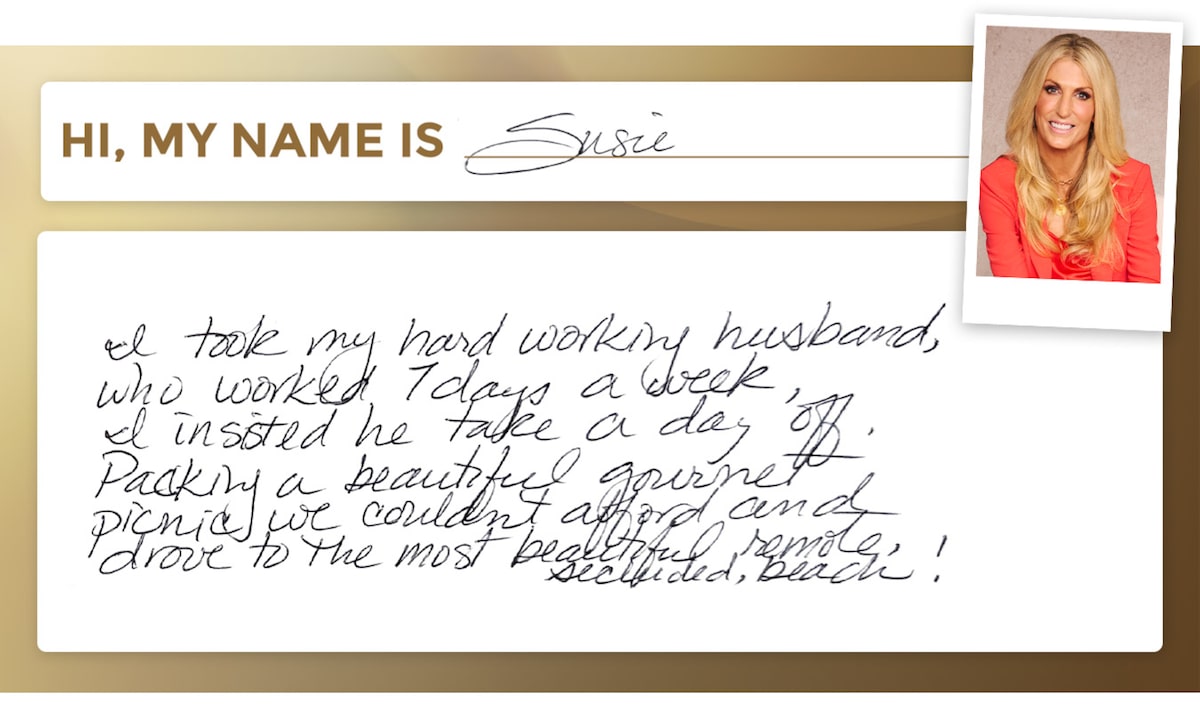 HI, MY NAME IS Susie
I took my hard working husband,
who worked 7 days a week,
I insisted he take a day off.
Packing a beautiful gourmet
picnic we couldn't afford and
drove to the most beautiful remote,
secluded, beach!